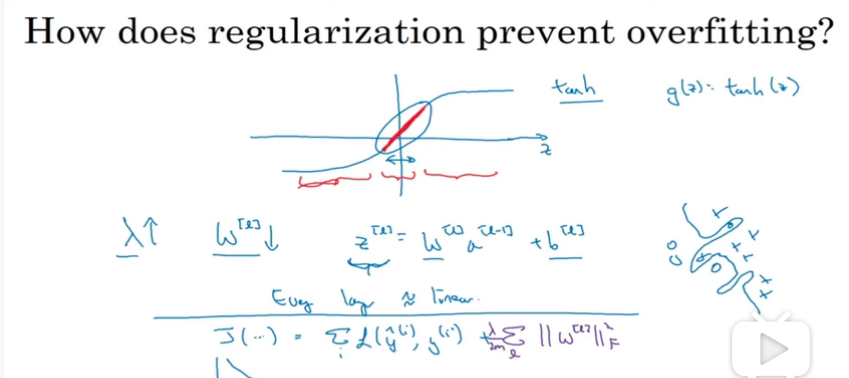 How does regularization prevent overfitting?
tanh g(z) = tanh(z)
z
λ↑ W^[l]↓ z^[l] = W^[l] a^[l-1] + b^[l]
Every layer ≈ linear.
J(...) = Σ_i L(ŷ^(i), y^(i)) + λ/2m Σ_l ||W^[l]||²_F